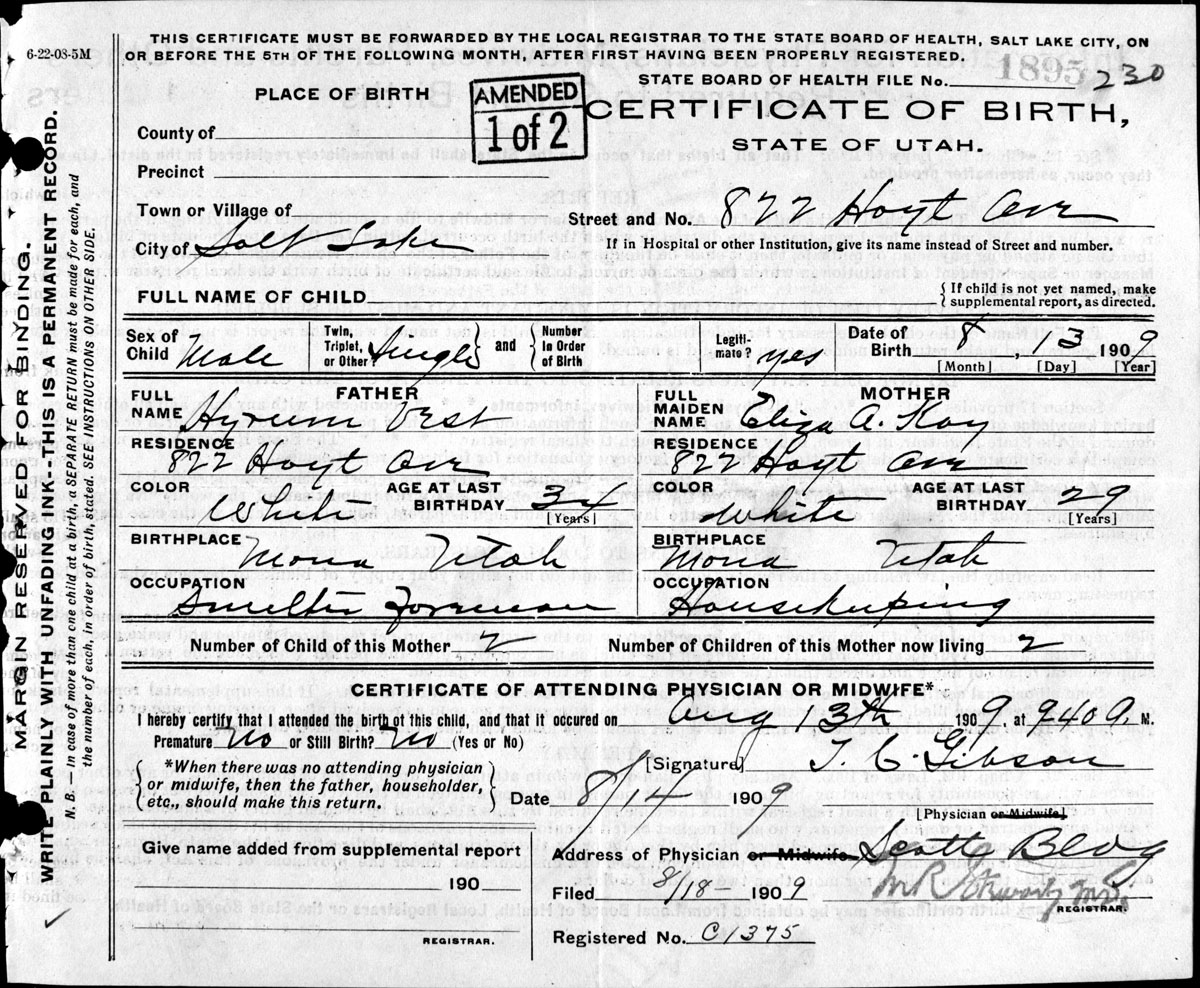 6-22-08-5M
THIS CERTIFICATE MUST BE FORWARDED BY THE LOCAL REGISTRAR TO THE STATE BOARD OF HEALTH, SALT LAKE CITY, ON
OR BEFORE THE 5TH OF THE FOLLOWING MONTH, AFTER FIRST HAVING BEEN PROPERLY REGISTERED.
STATE BOARD OF HEALTH FILE No. 1895 230
PLACE OF BIRTH
AMENDED
1 of 2
CERTIFICATE OF BIRTH,
STATE OF UTAH.
County of
Precinct
Town or Village of
Street and No. 822 Hoyt Ave
City of Salt Lake
If in Hospital or other Institution, give its name instead of Street and number.
FULL NAME OF CHILD
{ If child is not yet named, make
supplemental report, as directed.
Sex of Child Male
Twin, Triplet, or Other? Single and { Number In Order of Birth
Legitimate? yes
Date of Birth 8, 13 1909
[Month] [Day] [Year]
FATHER
FULL NAME Hyrum
RESIDENCE
822 Hoyt Ave
COLOR White
AGE AT LAST BIRTHDAY 34
[Years]
BIRTHPLACE
Mona Utah
OCCUPATION
Smelter Foreman
MOTHER
FULL MAIDEN NAME Eliza A. Kay
RESIDENCE
822 Hoyt Ave
COLOR White
AGE AT LAST BIRTHDAY 29
[Years]
BIRTHPLACE
Mona Utah
OCCUPATION
Housekeeping
Number of Child of this Mother 2
Number of Children of this Mother now living 2
CERTIFICATE OF ATTENDING PHYSICIAN OR MIDWIFE*
I hereby certify that I attended the birth of this child, and that it occured on Aug 13th 1909, at 940 M.
Premature No or Still Birth? No (Yes or No)
[Signature] T. C. Gibson
*When there was no attending physician
or midwife, then the father, householder,
etc., should make this return.
Date 8/14 1909
[Physician or Midwife]
Give name added from supplemental report
190
REGISTRAR.
Address of Physician or Midwife Scott Bldg
Filed 8/18 1909
M R Stewart, MD.
REGISTRAR.
Registered No. C1375
MARGIN RESERVED FOR BINDING.
WRITE PLAINLY WITH UNFADING INK--THIS IS A PERMANENT RECORD.
N. B.—In case of more than one child at a birth, a SEPARATE RETURN must be made for each, and
the number of each, in order of birth, stated. SEE INSTRUCTIONS ON OTHER SIDE.